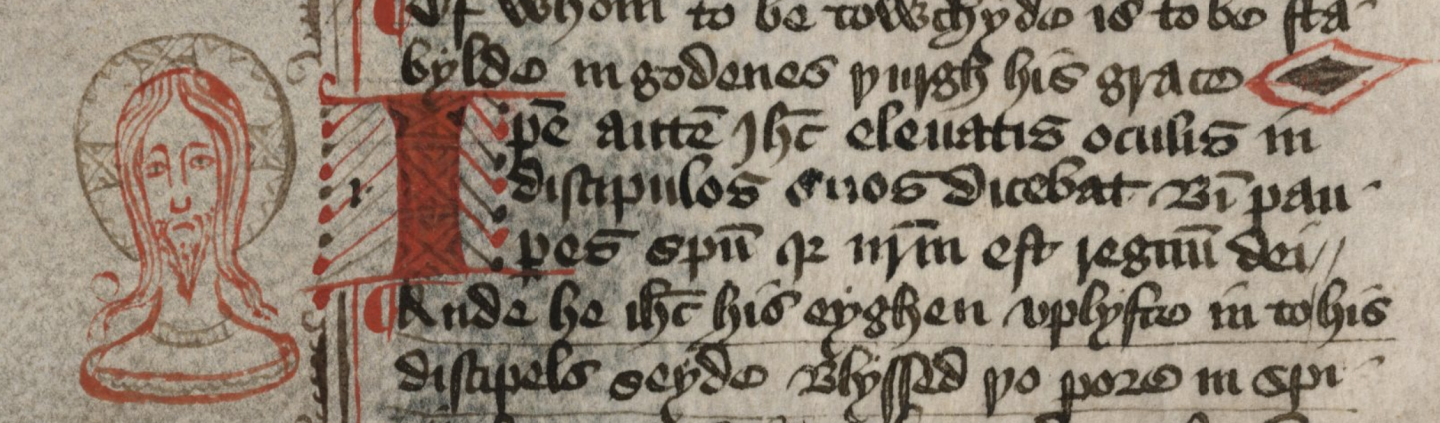 Of whom to be towchyde is to be sta
bylde in godenes þurgh his grace
Ipē autē Jhc̄ eleuatis oculis in
discipulos suos dicebat Bī pau
peṡ spū qr nr̄m est regnū dei
Ande he ihc̄ his eyghen vplyfte in to his
discipels seyde Blyssed þo pore in spi